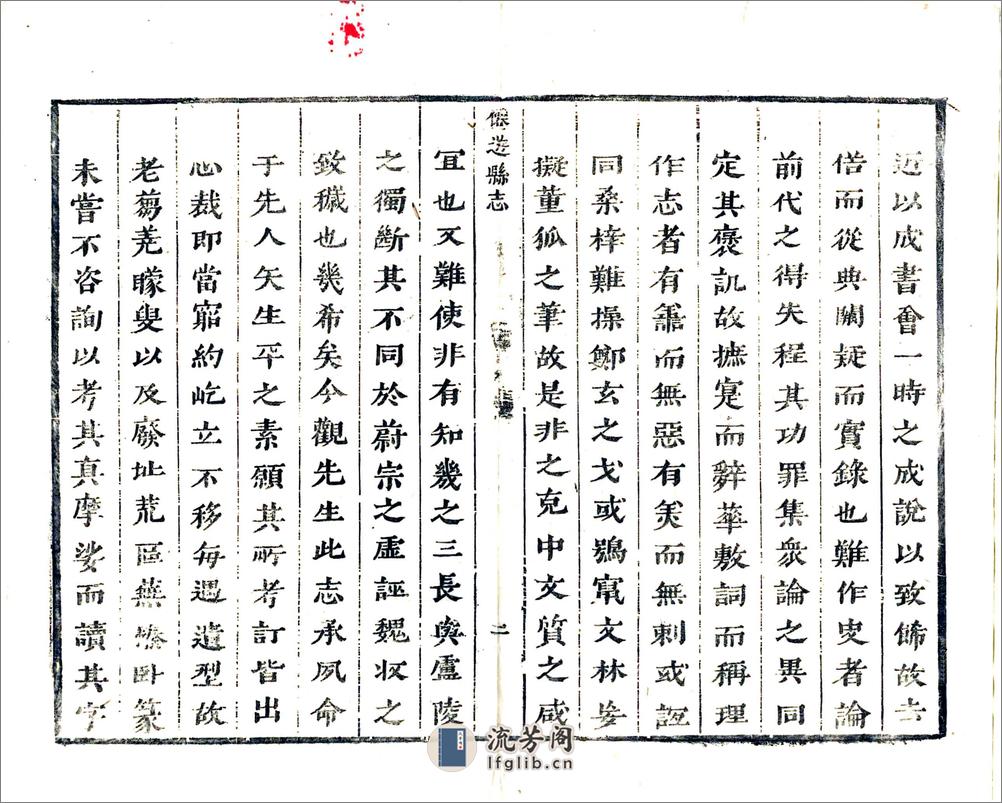 近以成書會一時之成說以致飾故去
偖而從典闕疑而實錄也難作史者論
前代之得失程其功罪集衆論之異同
定其褒譏故摭寔而辭華敷詞而稱理
作志者有善而無惡有美而無刺或誼
同桑梓難操鄭玄之戈或鴞鼠文林妄
擬董狐之筆故是非之克中文質之咸
偃師縣志
二
宜也又難使非有知幾之三長與盧陵
之獨斷其不同於蔚宗之虛誣魏收之
致穢也幾希矣今觀先生此志承夙命
于先人矢生平之素願其所考訂皆出
心裁即當窮約屹立不移每遇遺型故
老芻蕘矇叟以及廢址荒區蕪榛臥篆
未嘗不咨詢以考其真摩娑而讀其字
流芳阁
lfglib.cn